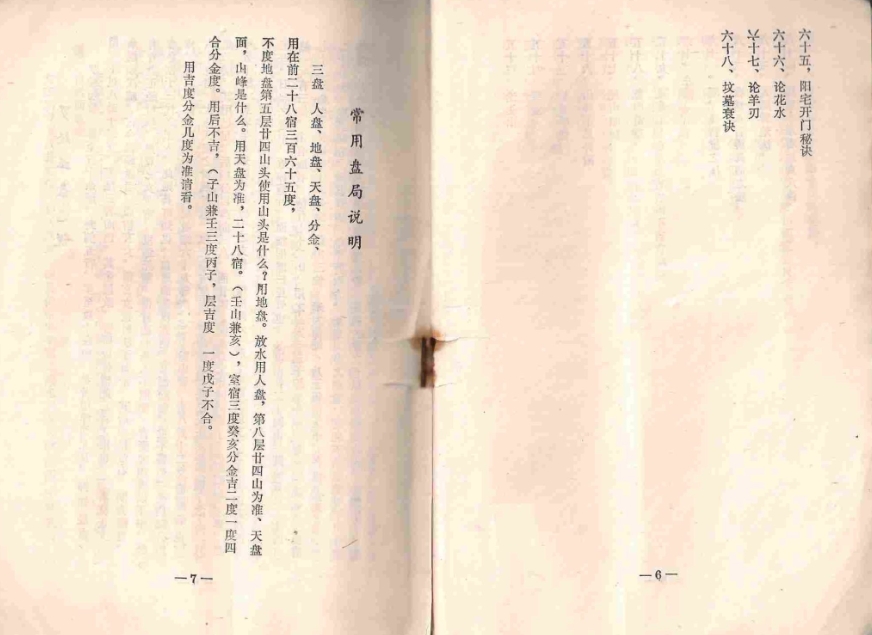 六十五，阳宅开门秘诀
六十六、论花水
六十七、论羊刃
六十八、坟墓衰诀
—6—
常用盘局说明
三盘　人盘、地盘、天盘、分金、
用在前二十八宿三百六十五度，
不度地盘第五层廿四山头使用山头是什么？用地盘。放水用人盘，第八层廿四山为准、天盘
面，山峰是什么。用天盘为准，二十八宿。（壬山兼亥），室宿三度癸亥分金吉二度一度四
合分金度。用后不吉，（子山兼壬三度丙子，层吉度　一度戊子不合。
用吉度分金几度为准请看。
—7—